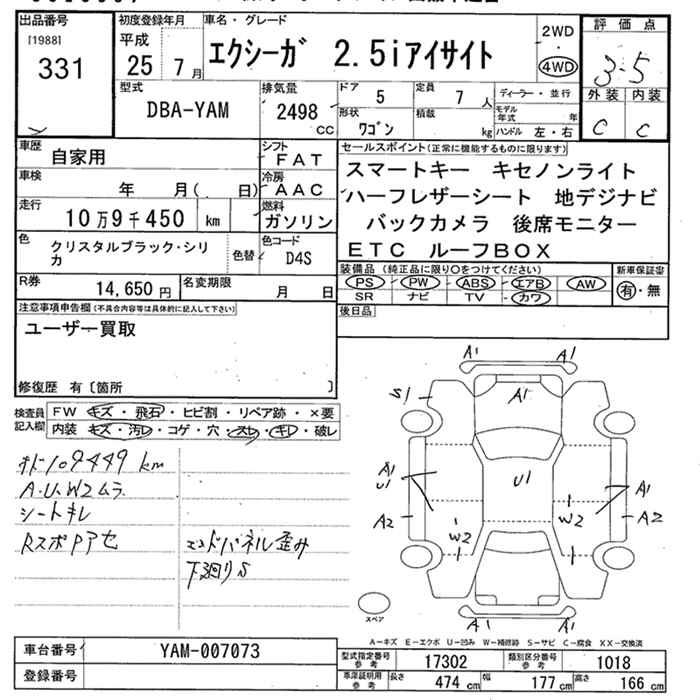 出品番号
[1988]
331
初度登録年月
平成
25 7月
車名・グレード
エクシーガ 2.5iアイサイト
2WD
4WD
評価点
3.5
外装 内装
C C
型式
DBA-YAM
排気量
2498
CC
ドア 5
定員 7人
形状 ワゴン
積載 kg
ディーラー・並行
モデル年式 年
ハンドル 左・右
車歴
自家用
シフト
FAT
車検
年 月( 日)
冷房
AAC
走行
10万9千450 km
燃料
ガソリン
色
クリスタルブラック・シリカ
色替
色コード
D4S
R券
14,650円
名変期限
月 日
セールスポイント(正常に機能するものに限ります)
スマートキー キセノンライト
ハーフレザーシート 地デジナビ
バックカメラ 後席モニター
ETC ルーフBOX
装備品(純正品に限り○をつけてください)
PS PW ABS エアB AW
SR ナビ TV カワ
新車保証書
有・無
後日品
注意事項申告欄(不具合内容等は具体的に記入して下さい)
ユーザー買取
修復歴 有〔箇所 〕
検査員記入欄
FW キズ・飛石・ヒビ割・リペア跡・×要
内装 キズ・汚レ・コゲ・穴・スレ・キレ・破レ
オド109449km
A.U.W2ムラ
シートキレ
RスポPアセ
エンドパネル歪み
下廻りS
A1 A1
S1 A1
A1
U1
U1
A1
A2 A2
W2 W2
スペア
A1 A1
A-キズ E-エクボ U-凹み W-補修跡 S-サビ C-腐食 XX-交換済
車台番号
YAM-007073
登録番号
型式指定番号
参考
17302
類別区分番号
参考
1018
車庫証明用
参考
長さ 474 cm
幅 177 cm
高さ 166 cm